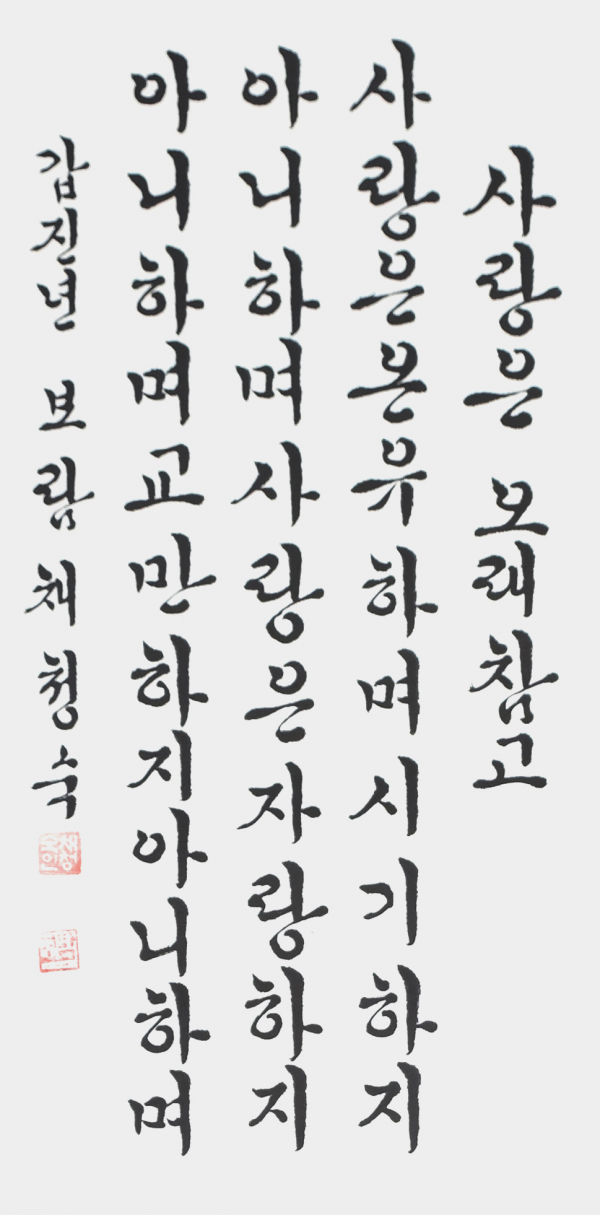 사랑은 오래참고
사랑은온유하며시기하지
아니하며사랑은자랑하지
아니하며교만하지아니하며
갑진년 보람 채청숙